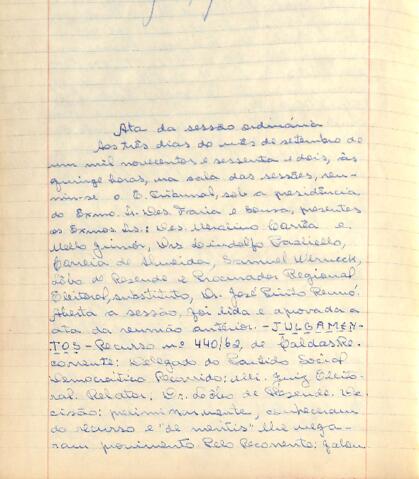 Ata da sessão ordinária
Aos três dias do mês de setembro de
um mil novecentos e sessenta e dois, às
quinze horas, na sala das sessões, reu-
niu-se o E. Tribunal, sob a presidência
do Exmo. Sr. Des. Faria e Sousa, presentes
os Exmos. Srs.: Des. Merolino Corrêa e
Mello Junior, Drs. Lindolfo
Correia de Almeida, Samuel Werneck,
Lôbo de Resende e Procurador Regional
Eleitoral, substituto, Dr. José Pinto Renó.
Aberta a sessão, foi lida e aprovada a
ata da reunião anterior. - JULGAMEN-
TOS - Recurso nº 440/62, de Caldas. Re-
corrente: Delegado do Partido Social
Democrático. Recorrido: MM. Juiz Eleito-
ral. Relator. Dr. Lôbo de Resende. De-
cisão: preliminarmente, conheceram
do recurso e "de meritis" lhe nega-
ram provimento. Pelo Recorrente: falou